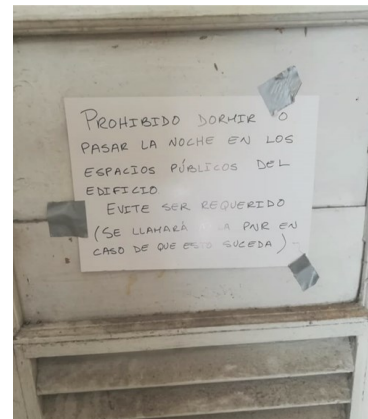 PROHIBIDO DORMIR O
PASAR LA NOCHE EN LOS
ESPACIOS PÚBLICOS DEL
EDIFICIO
EVITE SER REQUERIDO
(SE LLAMARÁ A LA PNR EN
CASO DE QUE ESTO SUCEDA)